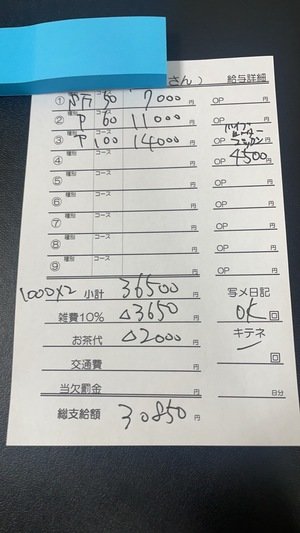 さん） 給与詳細
① 種別 コース 50 7000円 OP 円
② 種別 P コース 60 11000円 OP 円
③ 種別 P コース 100 14000円 OP 円
④ 種別 コース 円 OP 4500円
⑤ 種別 コース 円 OP 円
⑥ 種別 コース 円 OP 円
⑦ 種別 コース 円 OP 円
⑧ 種別 コース 円 OP 円
⑨ 種別 コース 円 OP 円
1000×2 小計 36500円 写メ日記
雑費10% △3650円 OK 回
お茶代 △2000円 キテネ
交通費 円 回
当欠罰金 円 日分
総支給額 30850円